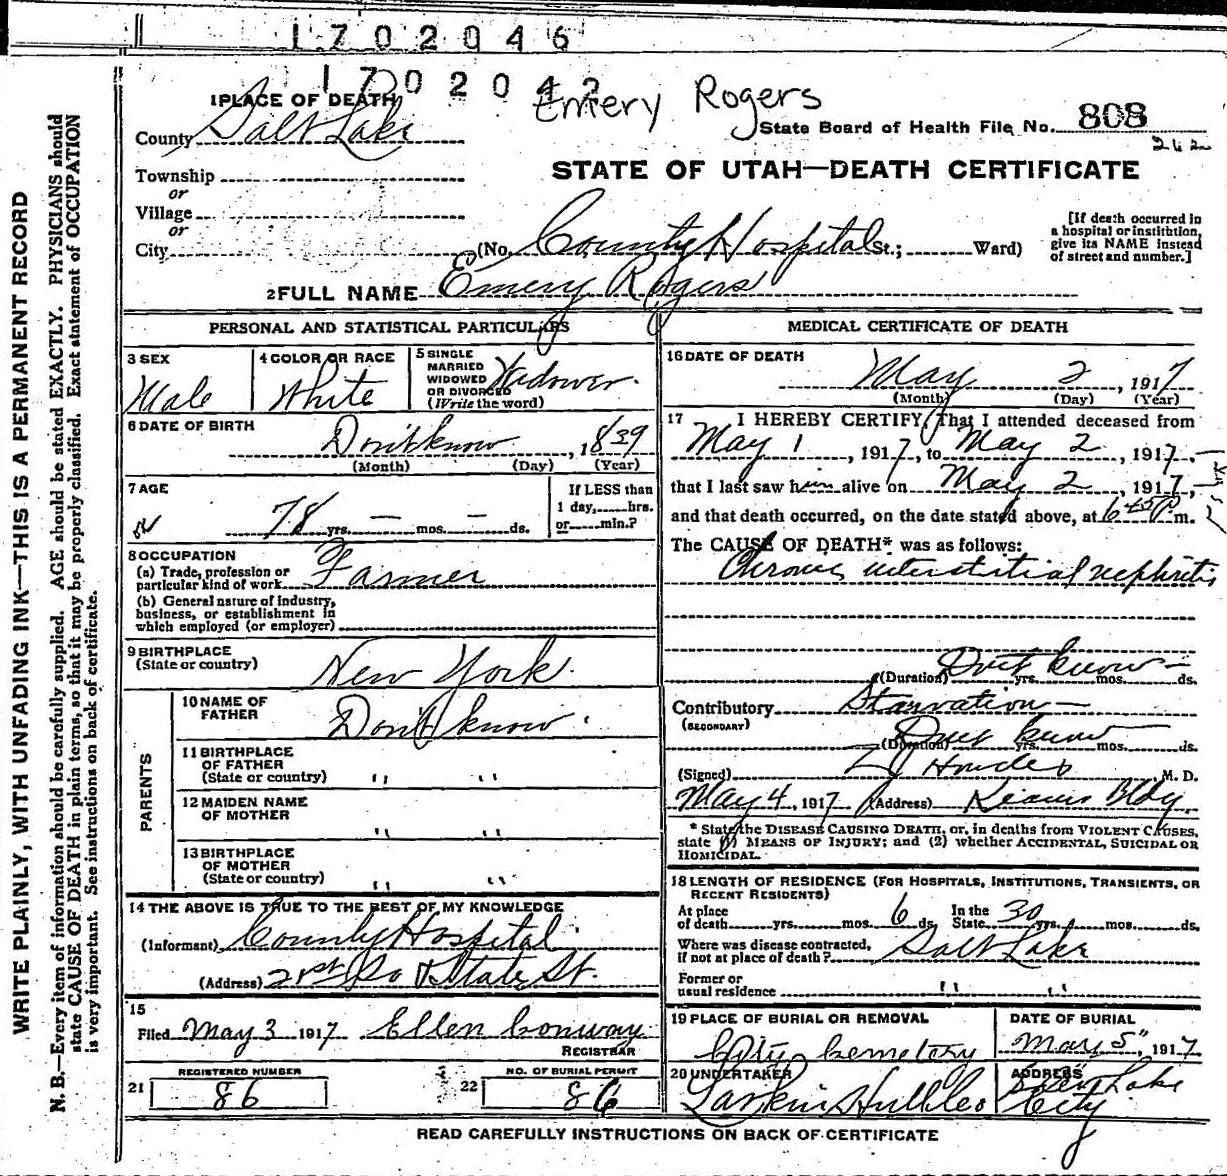 1702046
1702042
Emery Rogers
1 PLACE OF DEATH
County Salt Lake
State Board of Health File No. 808
262
Township
or
Village
or
City
STATE OF UTAH—DEATH CERTIFICATE
(No. County Hospital St.; Ward)
[If death occurred in
a hospital or institution,
give its NAME instead
of street and number.]
2 FULL NAME Emery Rogers
PERSONAL AND STATISTICAL PARTICULARS
3 SEX
Male
4 COLOR OR RACE
White
5 SINGLE
MARRIED
WIDOWED
OR DIVORCED
(Write the word)
Widower.
6 DATE OF BIRTH
Don't know, 1839
(Month) (Day) (Year)
7 AGE
78 yrs. — mos. — ds.
If LESS than
1 day, hrs.
or min.?
8 OCCUPATION
(a) Trade, profession or
particular kind of work Farmer
(b) General nature of industry,
business, or establishment in
which employed (or employer)
9 BIRTHPLACE
(State or country)
New York.
PARENTS
10 NAME OF
FATHER
Don't know.
11 BIRTHPLACE
OF FATHER
(State or country) " "
12 MAIDEN NAME
OF MOTHER
" "
13 BIRTHPLACE
OF MOTHER
(State or country) " "
14 THE ABOVE IS TRUE TO THE BEST OF MY KNOWLEDGE
(Informant) County Hospital
(Address) 21st So & State St.
15
Filed May 3 1917 Ellen Conway
REGISTRAR
REGISTERED NUMBER
21 86
NO. OF BURIAL PERMIT
22 86
MEDICAL CERTIFICATE OF DEATH
16 DATE OF DEATH
May 2, 1917
(Month) (Day) (Year)
17 I HEREBY CERTIFY, That I attended deceased from
May 1, 1917, to May 2, 1917,
that I last saw him alive on May 2, 1917,
and that death occurred, on the date stated above, at 6 45 P m.
The CAUSE OF DEATH* was as follows:
Chronic interstitial nephritis
(Duration) Don't know — yrs. mos. ds.
Contributory Starvation —
(SECONDARY)
(Duration) Don't know yrs. mos. ds.
(Signed) M. D.
May 4, 1917 (Address) Kearns Bldg.
* State the DISEASE CAUSING DEATH, or, in deaths from VIOLENT CAUSES,
state (1) MEANS OF INJURY; and (2) whether ACCIDENTAL, SUICIDAL OR
HOMICIDAL.
18 LENGTH OF RESIDENCE (FOR HOSPITALS, INSTITUTIONS, TRANSIENTS, OR
RECENT RESIDENTS)
At place
of death yrs. mos. 6 ds. In the
State 30 yrs. mos. ds.
Where was disease contracted,
if not at place of death? Salt Lake
Former or
usual residence " "
19 PLACE OF BURIAL OR REMOVAL
City Cemetery
DATE OF BURIAL
May 5", 1917
20 UNDERTAKER
Larkin Hull
ADDRESS
Salt Lake
City
READ CAREFULLY INSTRUCTIONS ON BACK OF CERTIFICATE
WRITE PLAINLY, WITH UNFADING INK—THIS IS A PERMANENT RECORD
N. B.—Every item of information should be carefully supplied. AGE should be stated EXACTLY. PHYSICIANS should
state CAUSE OF DEATH in plain terms, so that it may be properly classified. Exact statement of OCCUPATION
is very important. See instructions on back of certificate.